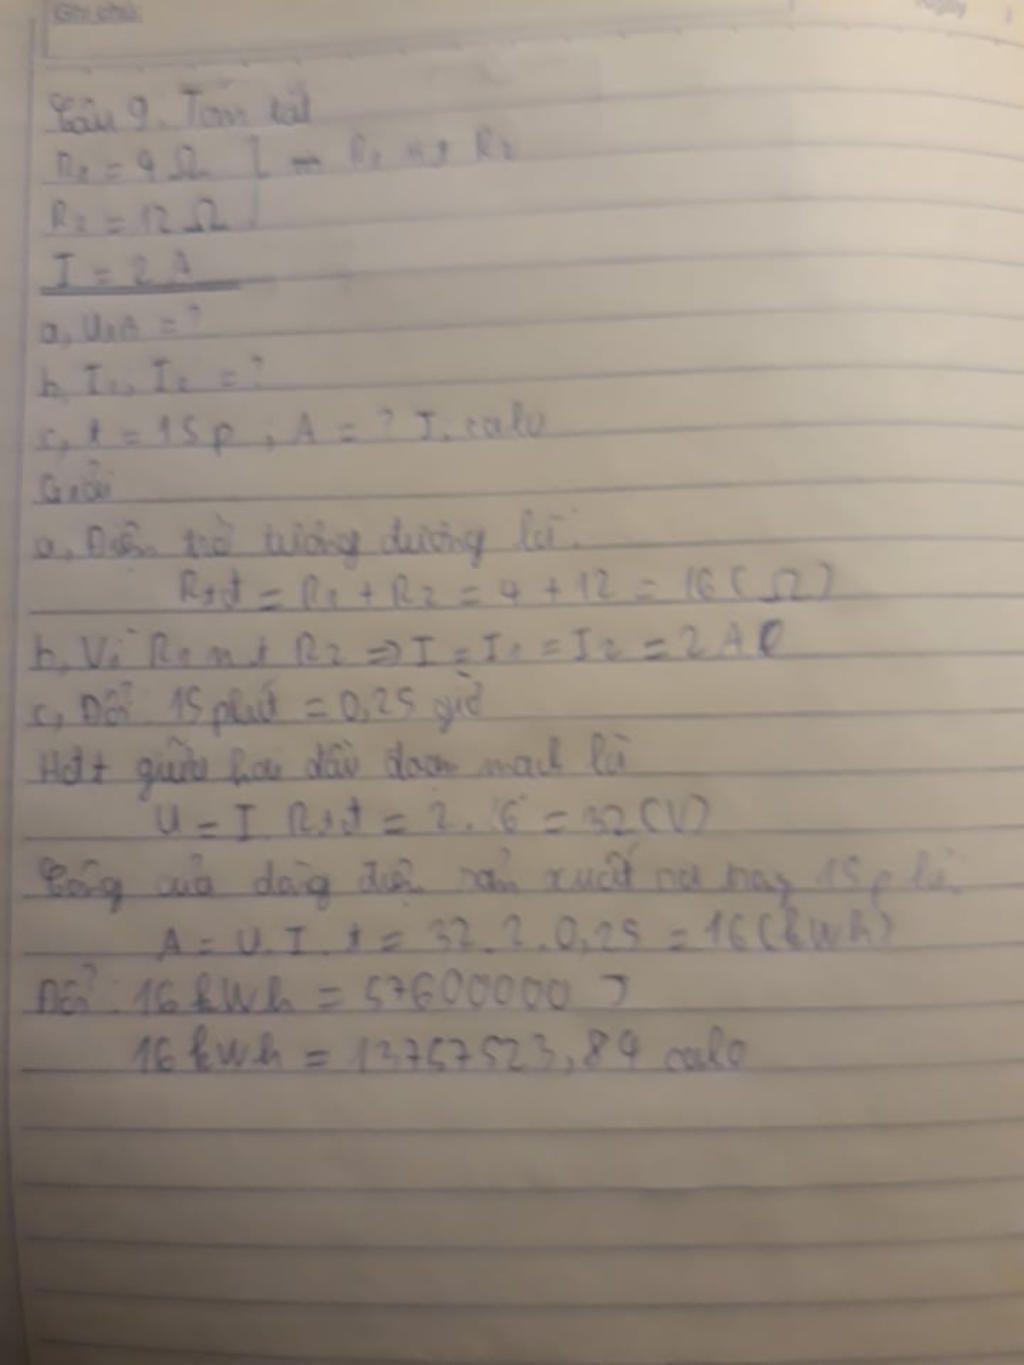 Ghi chú:
Ngày
Câu 9. Tóm tắt
R1 = 4 Ω ] R1 nt R2
R2 = 12 Ω
I = 2 A
a, = ?
b, I1, I2 = ?
c, t = 15p ; A = ? J, calo
Giải
a, Điện trở tương đương là:
Rtđ = R1 + R2 = 4 + 12 = 16 (Ω)
b, Vì R1 nt R2 => I = I1 = I2 = 2A
c, Đổi 15 phút = 0,25 giờ
Hđt giữa hai đầu đoạn mạch là
U = I. Rtđ = 2. 16 = 32 (V)
Công của dòng điện sản xuất ra 15p là:
A = U. I. t = 32. 2. 0,25 = 16 (kWh)
Đổi: 16 kWh = 57600000 J
16 kWh = 13757523,89 calo